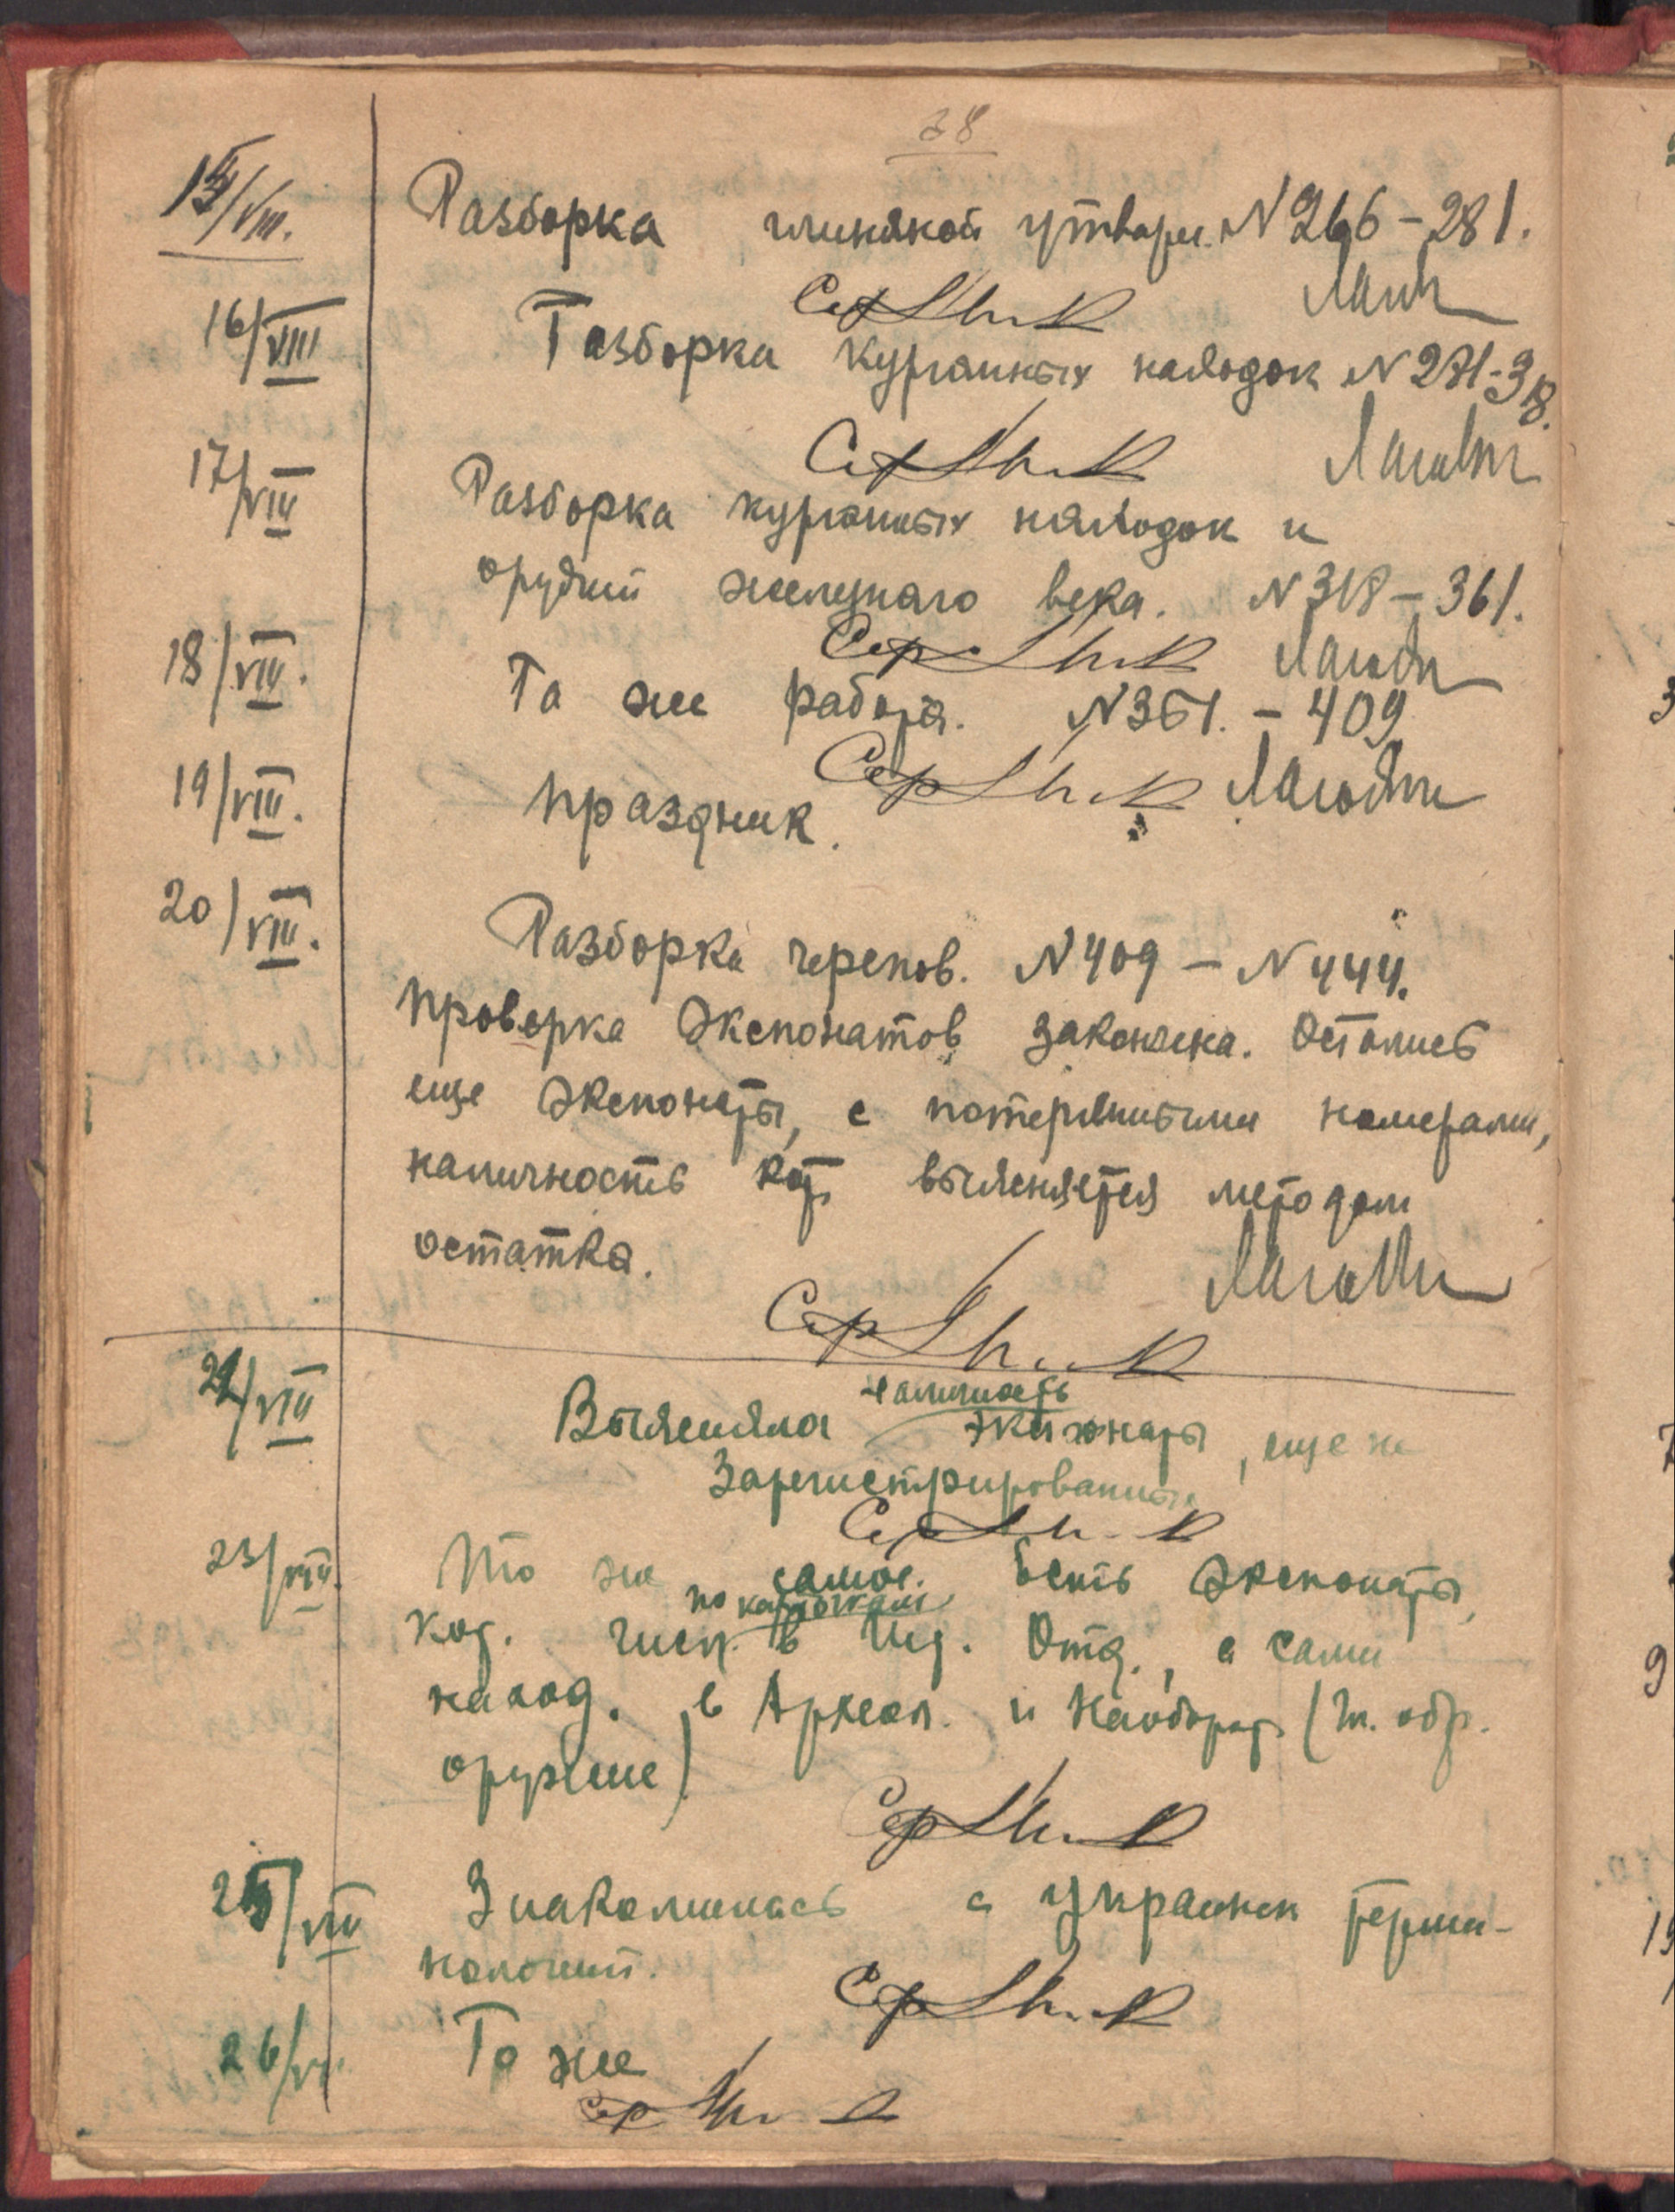 38
15/VIII. Разборка глиняной утвари. N 266-281.
16/VIII Разборка курганных находок N 281-318.
17/VIII Разборка курганных находок и
орудий железнаго века. N 318-361.
18/VIII. Та же работа. N 361.-409
19/VIII. Праздник.
20/VIII. Разборка черепов. N 409 - N 444.
Проверка экспонатов закончена. Остались
еще экспонаты, с потерянными номерами,
наличность кот. выясняется методом
остатка.
22/VIII Выясняла наличность экспонаты, еще не
зарегистрированных
23/VIII. То же самое. Есть экспонаты,
по карточкам
кот. числ. в Ист. Отд., а сами
наход. в Археол. и наоборот (т. обр.
оружие)
25/VIII Знакомилась с украинск терми-
нологией.
26/VIII. То же